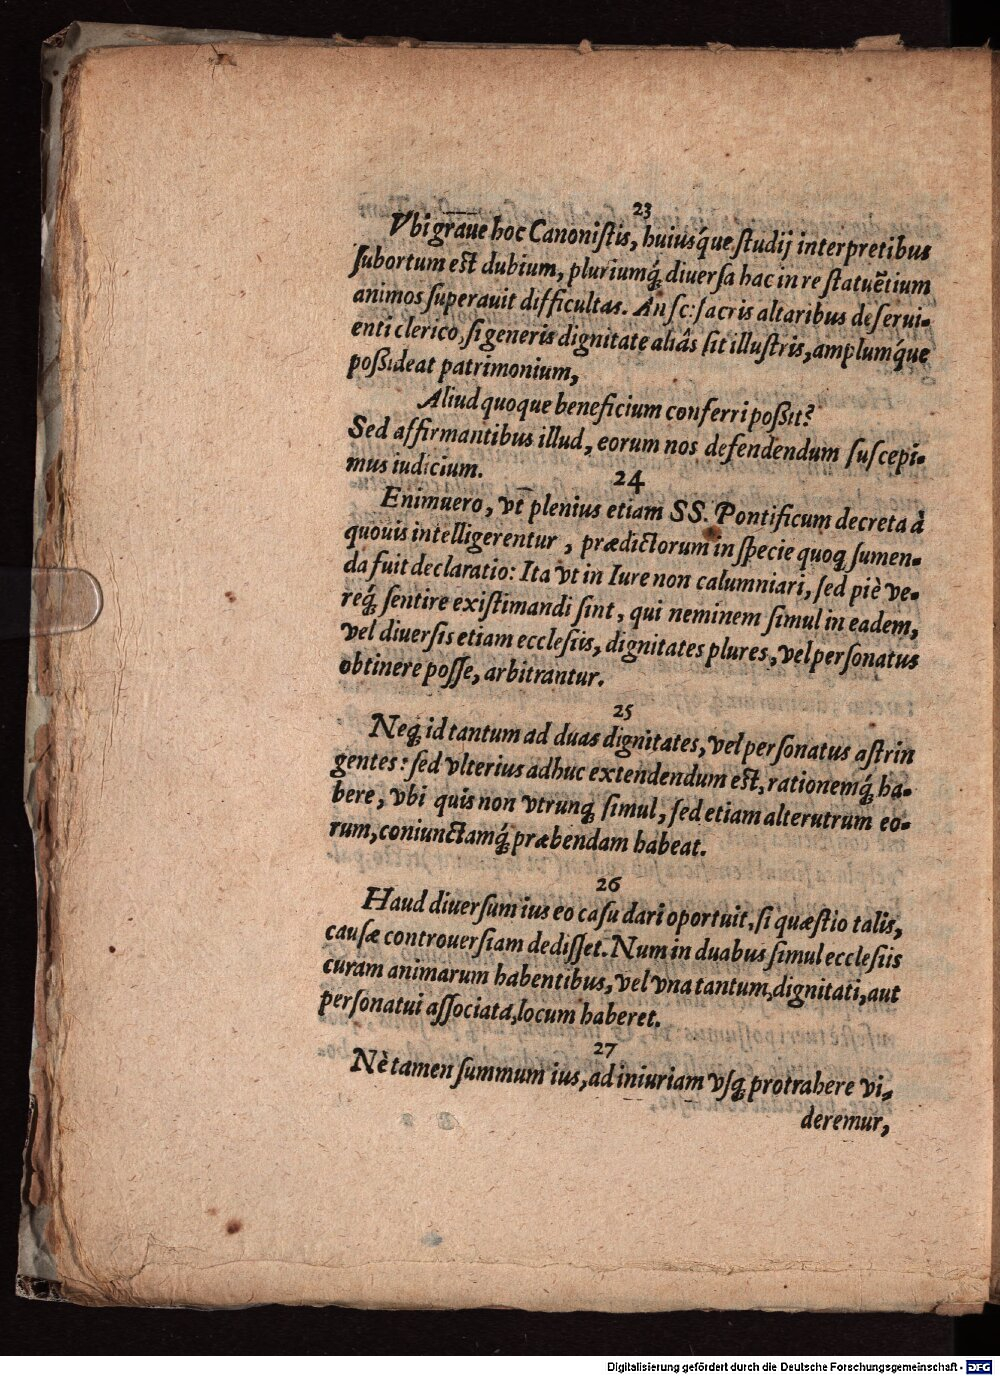 23
Vbi graue hoc Canoniſtis, huiusq́ue ſtudij interpretibus
ſubortum eſt dubium, pluriumq́; diuerſa hac in re ſtatuẽtium
animos ſuperauit difficultas. An ſc: ſacris altaribus deſerui-
enti clerico, ſi generis dignitate aliâs ſit illuſtris, amplumq́ue
poßideat patrimonium,
Aliud quoque beneficium conferri poßit?
Sed affirmantibus illud, eorum nos defendendum ſuſcepi-
mus iudicium.
24
Enimuero, vt plenius etiam SS. Pontificum decreta à
quouis intelligerentur, prædictorum in ſpecie quoq; ſumen-
da fuit declaratio: Ita vt in Iure non calumniari, ſed piè ve-
req́; ſentire exiſtimandi ſint, qui neminem ſimul in eadem,
vel diuerſis etiam eccleſiis, dignitates plures, vel perſonatus
obtinere poſſe, arbitrantur.
25
Neq; id tantum ad duas dignitates, vel perſonatus aſtrin
gentes: ſed vlterius adhuc extendendum eſt, rationemq́; ha-
bere, vbi quis non vtrunq; ſimul, ſed etiam alterutrum eo-
rum, coniunctamq́; præbendam habeat.
26
Haud diuerſum ius eo caſu dari oportuit, ſi quæſtio talis,
cauſæ controuerſiam dediſſet. Num in duabus ſimul eccleſiis
curam animarum habentibus, vel vna tantum, dignitati, aut
perſonatui aſſociata, locum haberet.
27
Nè tamen ſummum ius, ad iniuriam vſq; protrahere vi-
deremur,
Digitalisierung gefördert durch die Deutsche Forschungsgemeinschaft - DFG